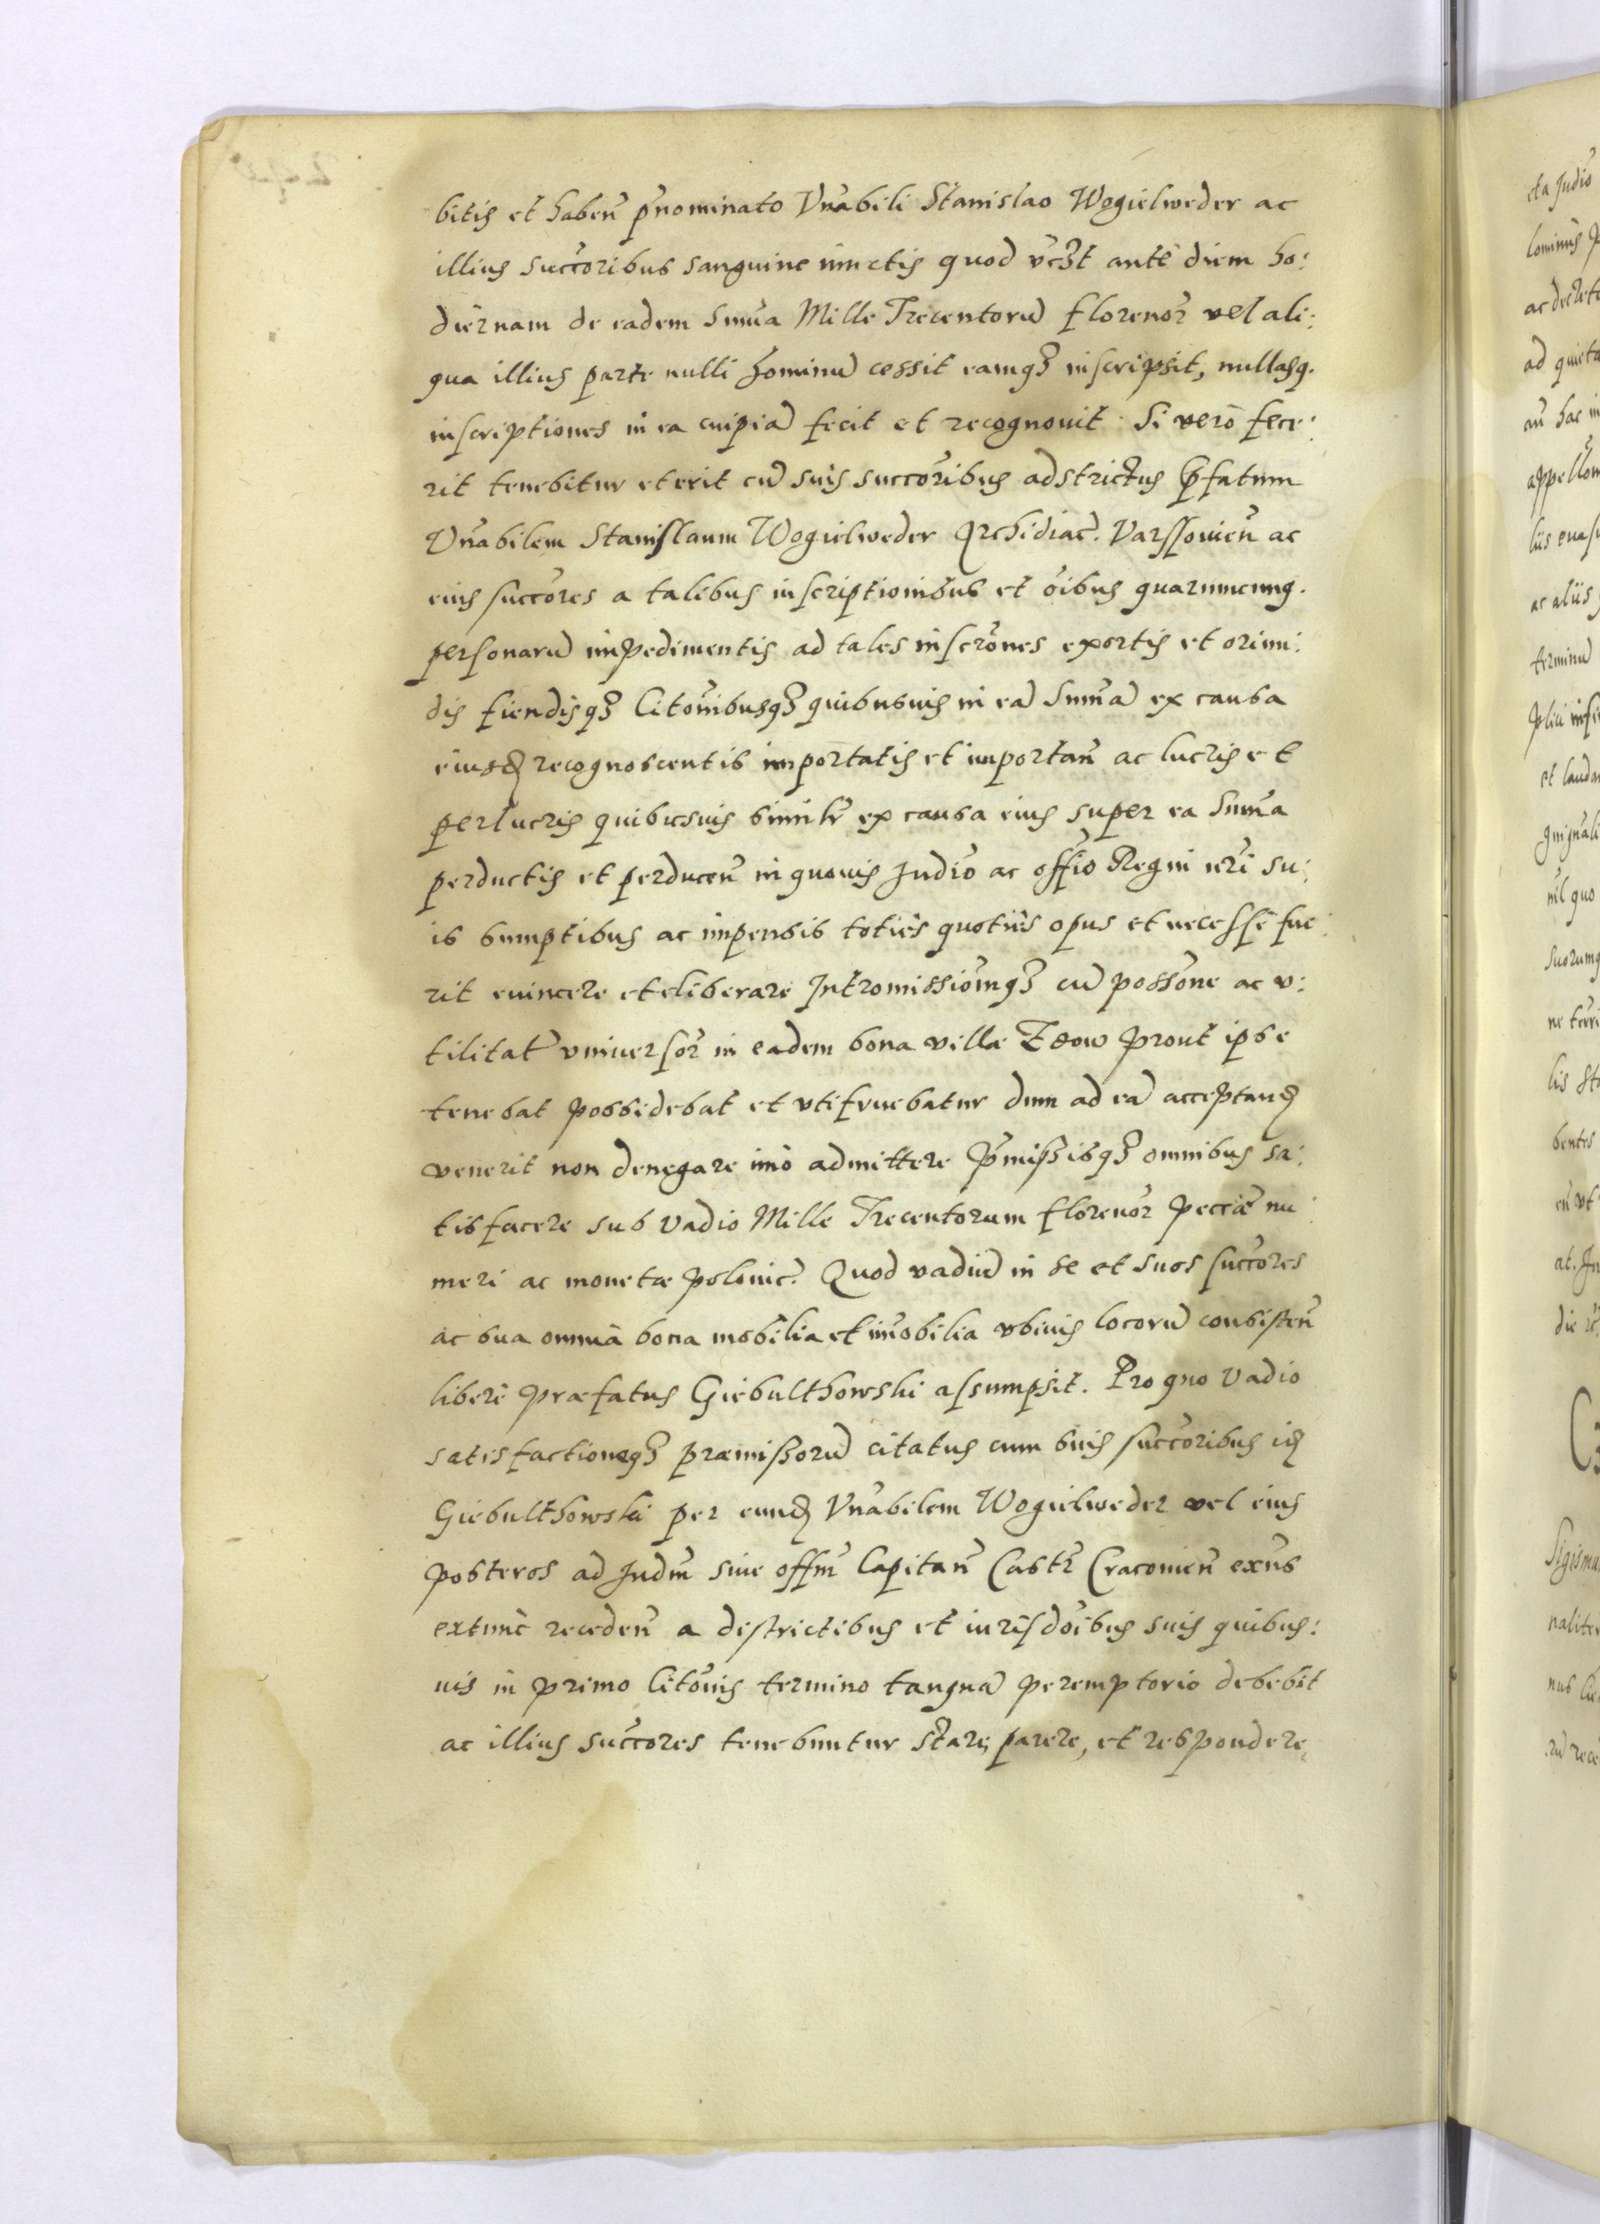 bitis et haben̄ p̄nominato Vn̄abili Stanislao Wogielweder ac
illius succ̄oribus sanguine iunctis quod vc̄ʒt ante diem ho:
diernam de eadem Sum̄a Mille Trecentorū florenor̄ vel ali:
qua illius parte nulli hominū cessit eamqʒ inscripsit, nullasq.
inscriptiones in ea cuipiā fecit et recognouit. Si vero fece:
rit tenebitur et erit cū suis succ̄oribus adstrictus p̄fatum
Vn̄abilem Stanislaum Wogielweder Archidiac̄. Varssouien̄ ac
eius succ̄ores a talibus inscriptionibus et oībus quarumcunq.
personarū impedimentis ad tales inscr̄ones exortis et oriun:
dis fiendisqʒ citoīnibusqʒ quibusuis in eā Sum̄ā ex causa
eiusd̄ recognoscentis importatis et importan̄ ac lucris et
perlucris quibusuis simil̄r ex causa eius super ea Sum̄a
perductis et perducen̄ in quouis Judīo ac offīo Regni nr̄i su:
is sumptibus ac impensis totiès quotiès opus et necesse fue:
rit euincere et eliberare Intromissioīnqʒ cū poss̄one ac v:
tilitat̄ vniuersor̄ in eadem bona villæ Zdow prout ipse
tenebat possidebat et vtifruebatur dum ad eā acceptand̄
venerit non denegare imò admittere p̄missisqʒ omnibus sa:
tisfacere sub vadio Mille Trecentorum florenor̄ pecc̄iæ nu:
meri ac monetæ polonic̄. Quod vadiū in se et suos succ̄ores
ac sua omnia bona mobilia et im̄obilia vbiuis locorū consisten̄
liberè præfatus Giebulthowski assumpsit. Pro quo vadio
satisfactioneqʒ præmissorū citatus cum suis succ̄oribus id̄
Giebulthowski per eund̄ Vn̄abilem Wogielweder vel eius
posteros ad Judm̄ siue offm̄ Capitan̄ Castr̄ Cracouien̄ exn̄s
extunc receden̄ a districtibus et iurisdoīibus suis quibus:
uis in primo citōnis termino tanquā peremptorio debebit
ac illius succ̄ores tenebuntur stare, parere, et respondere,